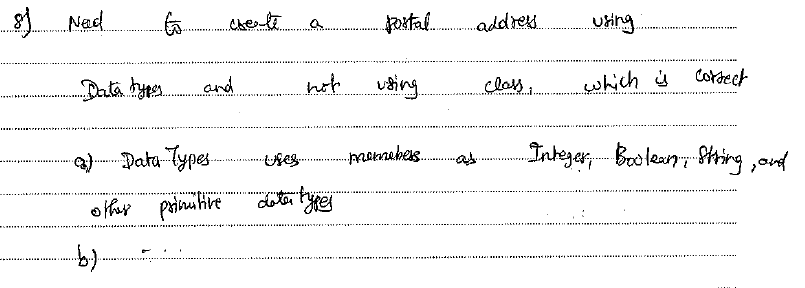 8) Need to create a postal address using
Data types and not using class, which is correct
a) Data Types uses memebers as Integer, Boolean, String, and
other primitive data types
b) - ...